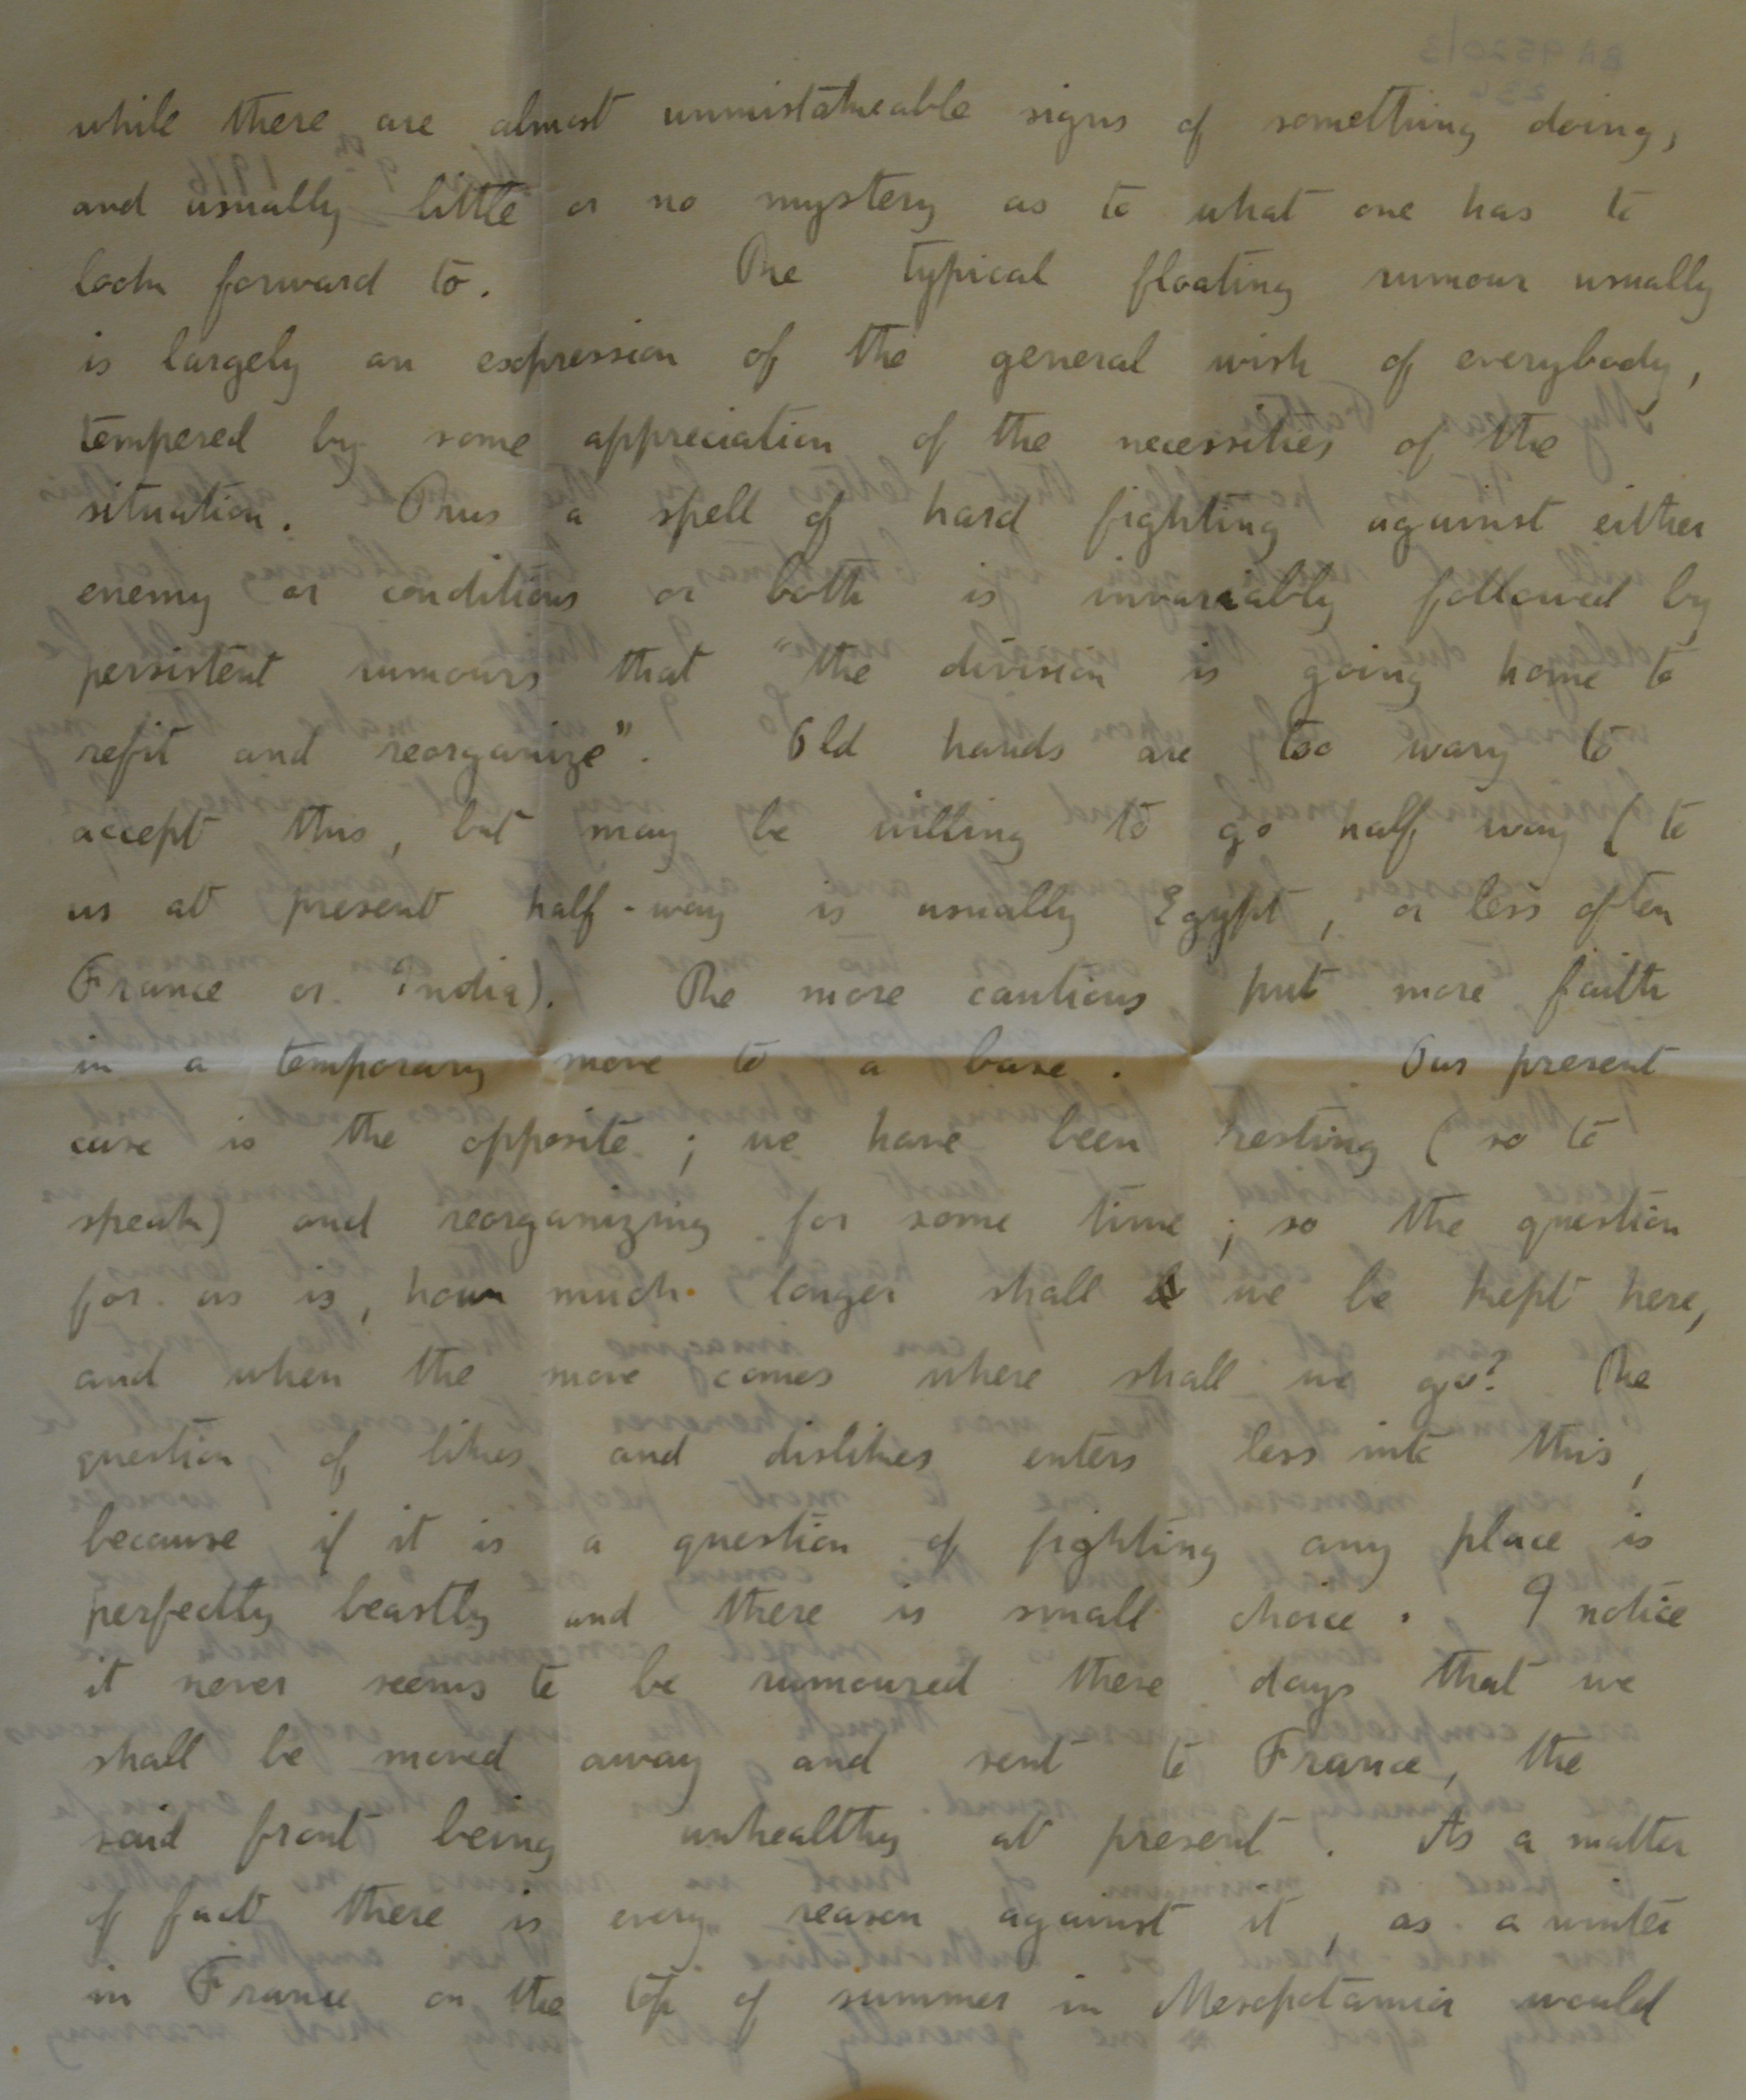 while there are almost unmistakeable signs of something doing,
and usually little or no mystery as to what one has to
look forward to. The typical floating rumour usually
is largely an expression of the general wish of everybody,
tempered by some appreciation of the necessities of the
situation. Thus a spell of hard fighting against either
enemy or conditions or both is invariably followed by
persistent rumours that "the division is going home to
refit and reorganize". Old hands are too wary to
accept this, but may be willing to go half way (to
us at present half-way is usually Egypt, or less often
France or India). The more cautious put more faith
in a temporary move to a base. Our present
case is the opposite; we have been resting (so to
speak) and reorganizing for some time; so the question
for us is, how much longer shall we be kept here,
and when the move comes where shall we go? The
question of likes and dislikes enters less into this,
because if it is a question of fighting any place is
perfectly beastly and there is small choice. I notice
it never seems to be rumoured these days that we
shall be moved away and sent to France, the
said front being unhealthy at present. As a matter
of fact there is every reason against it, as a winter
in France on the top of summer in Mesopotamia would